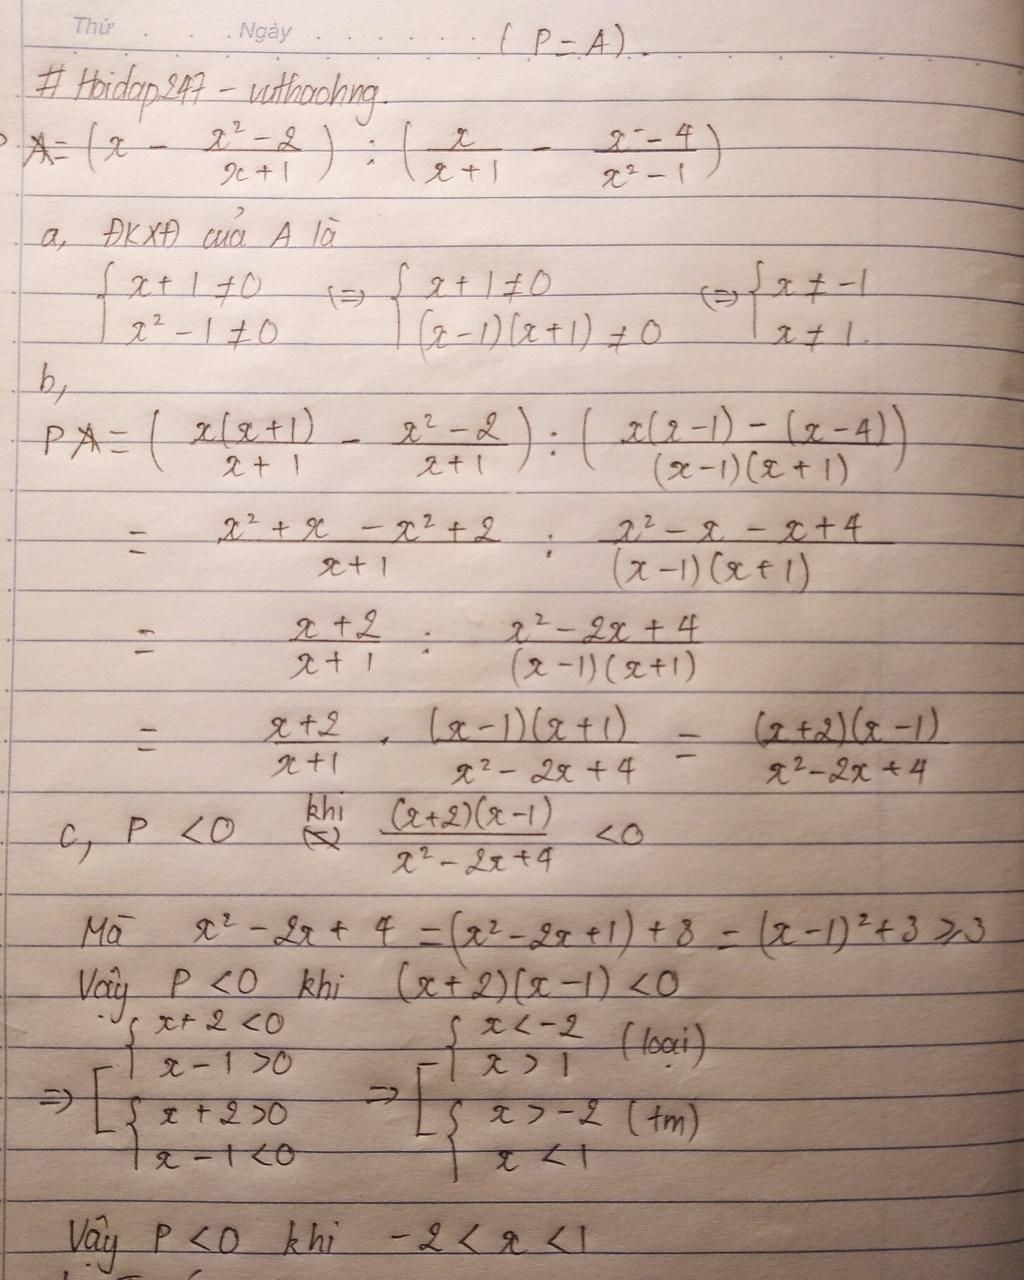 Thứ . . . Ngày . . . . . . . (P = A).
# Hoidap247 - vuthaohng.
A = (x - (x² - 2)/(x + 1)) : (x/(x + 1) - (x - 4)/(x² - 1))
a, ĐKXĐ của A là
{ x + 1 ≠ 0 ; x² - 1 ≠ 0 (=) { x + 1 ≠ 0 ; (x - 1)(x + 1) ≠ 0 (=) { x ≠ -1 ; x ≠ 1.
b,
P A = (x(x + 1)/(x + 1) - (x² - 2)/(x + 1)) : ((x(x - 1) - (x - 4))/((x - 1)(x + 1)))
= (x² + x - x² + 2)/(x + 1) : (x² - x - x + 4)/((x - 1)(x + 1))
= (x + 2)/(x + 1) : (x² - 2x + 4)/((x - 1)(x + 1))
= (x + 2)/(x + 1) . ((x - 1)(x + 1))/(x² - 2x + 4) = ((x + 2)(x - 1))/(x² - 2x + 4)
c, P < 0 khi ((x + 2)(x - 1))/(x² - 2x + 4) < 0
Mà x² - 2x + 4 = (x² - 2x + 1) + 3 = (x - 1)² + 3 ⩾ 3
Vậy P < 0 khi (x + 2)(x - 1) < 0
=> [ { x + 2 < 0 ; x - 1 > 0 ; { x + 2 > 0 ; x - 1 < 0 => [ { x < -2 ; x > 1 (loại) ; { x > -2 ; x < 1 (tm)
Vậy P < 0 khi -2 < x < 1